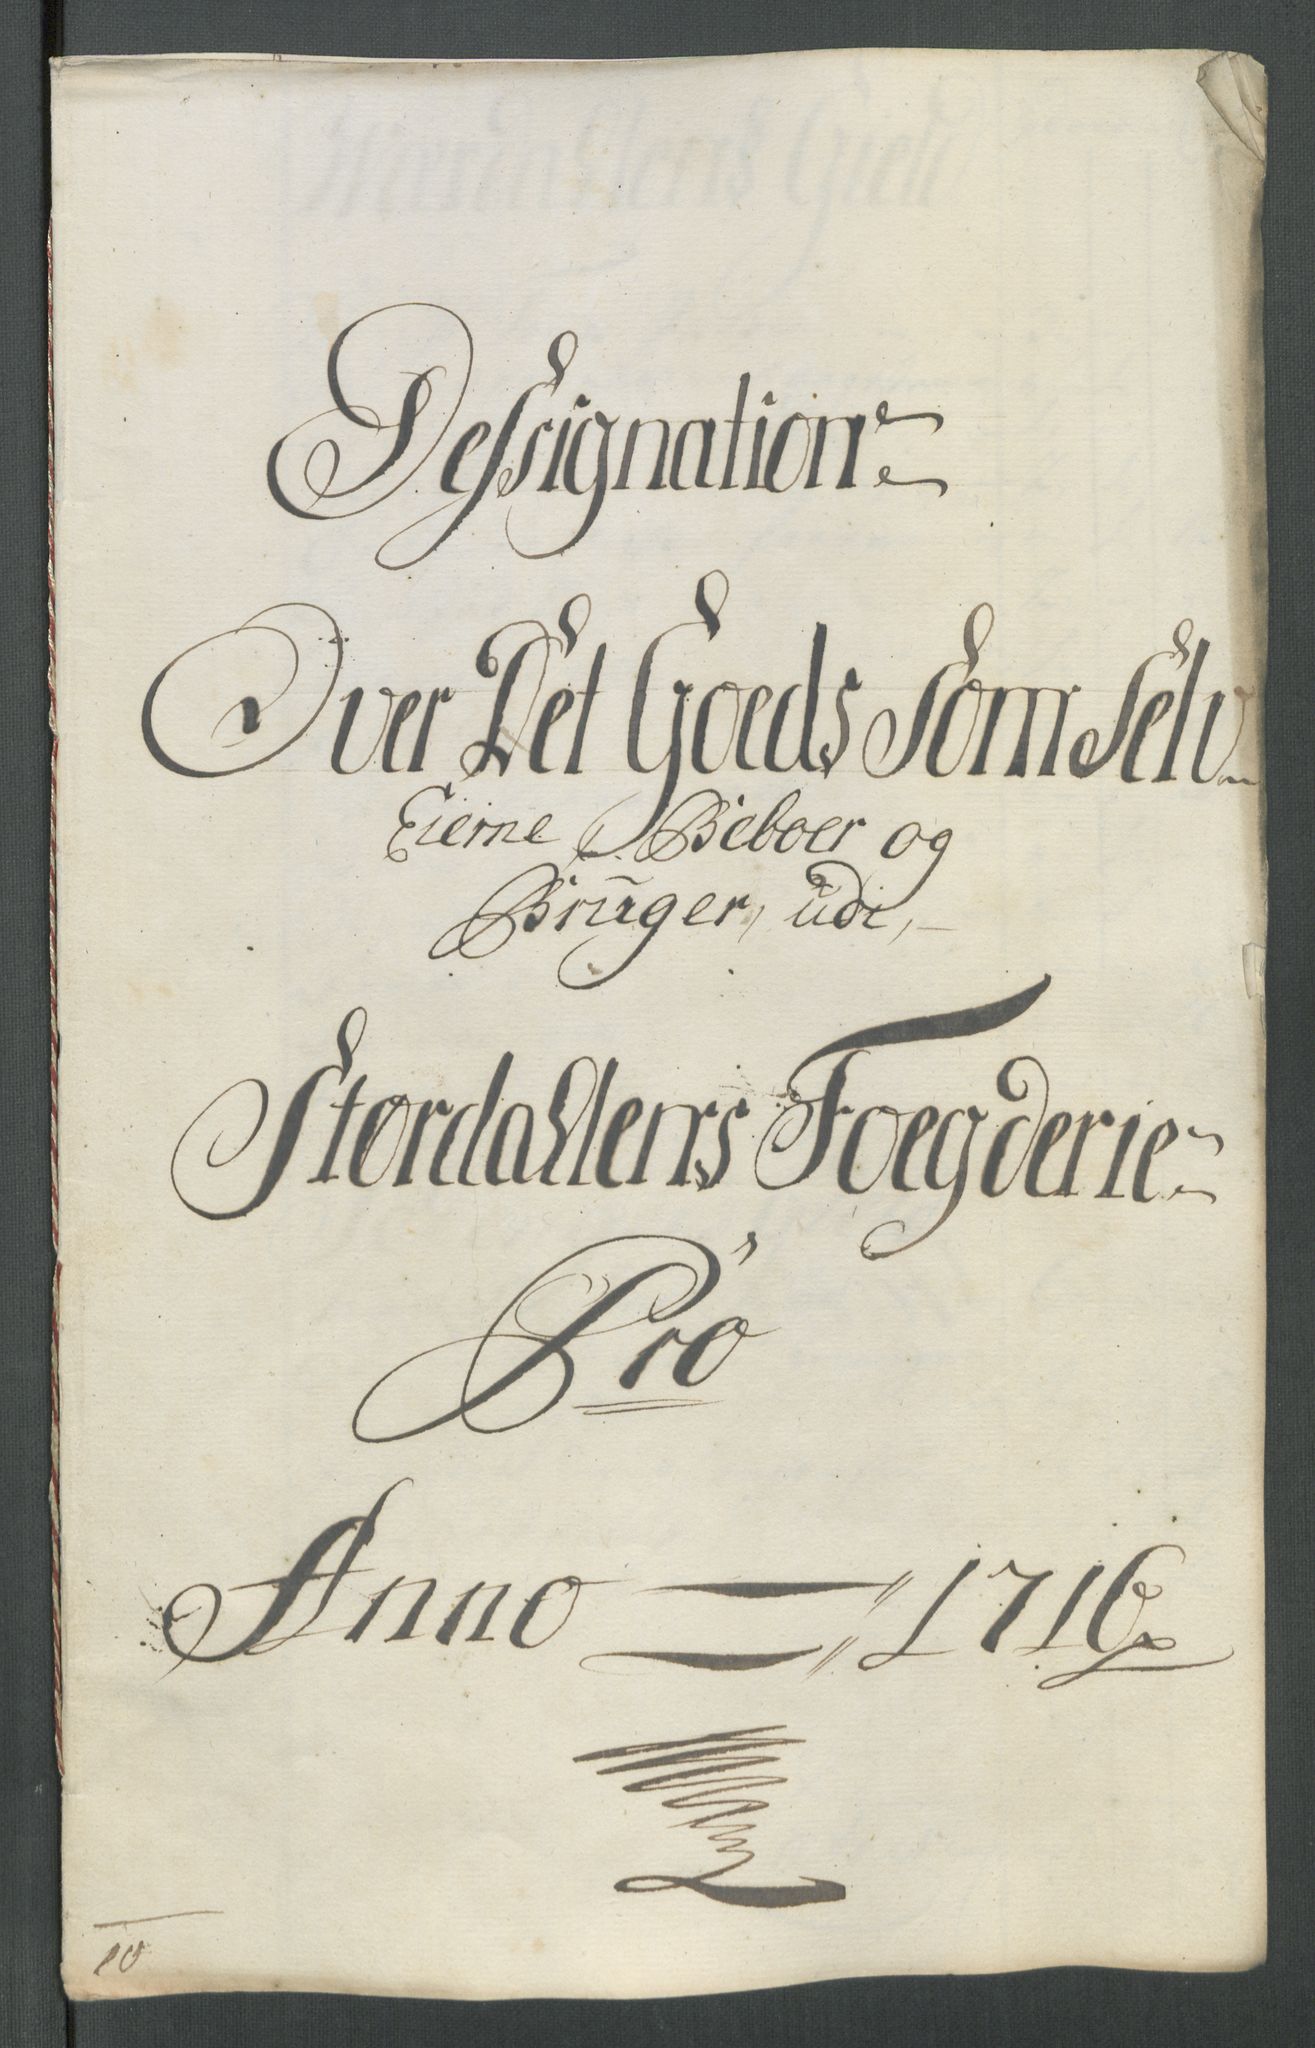 Dessignation
Over Det Goeds Som Selv
Eierne, Beboer og
Bruger, udi,
Stordallens Foegderie
Pro
Anno 1716
10